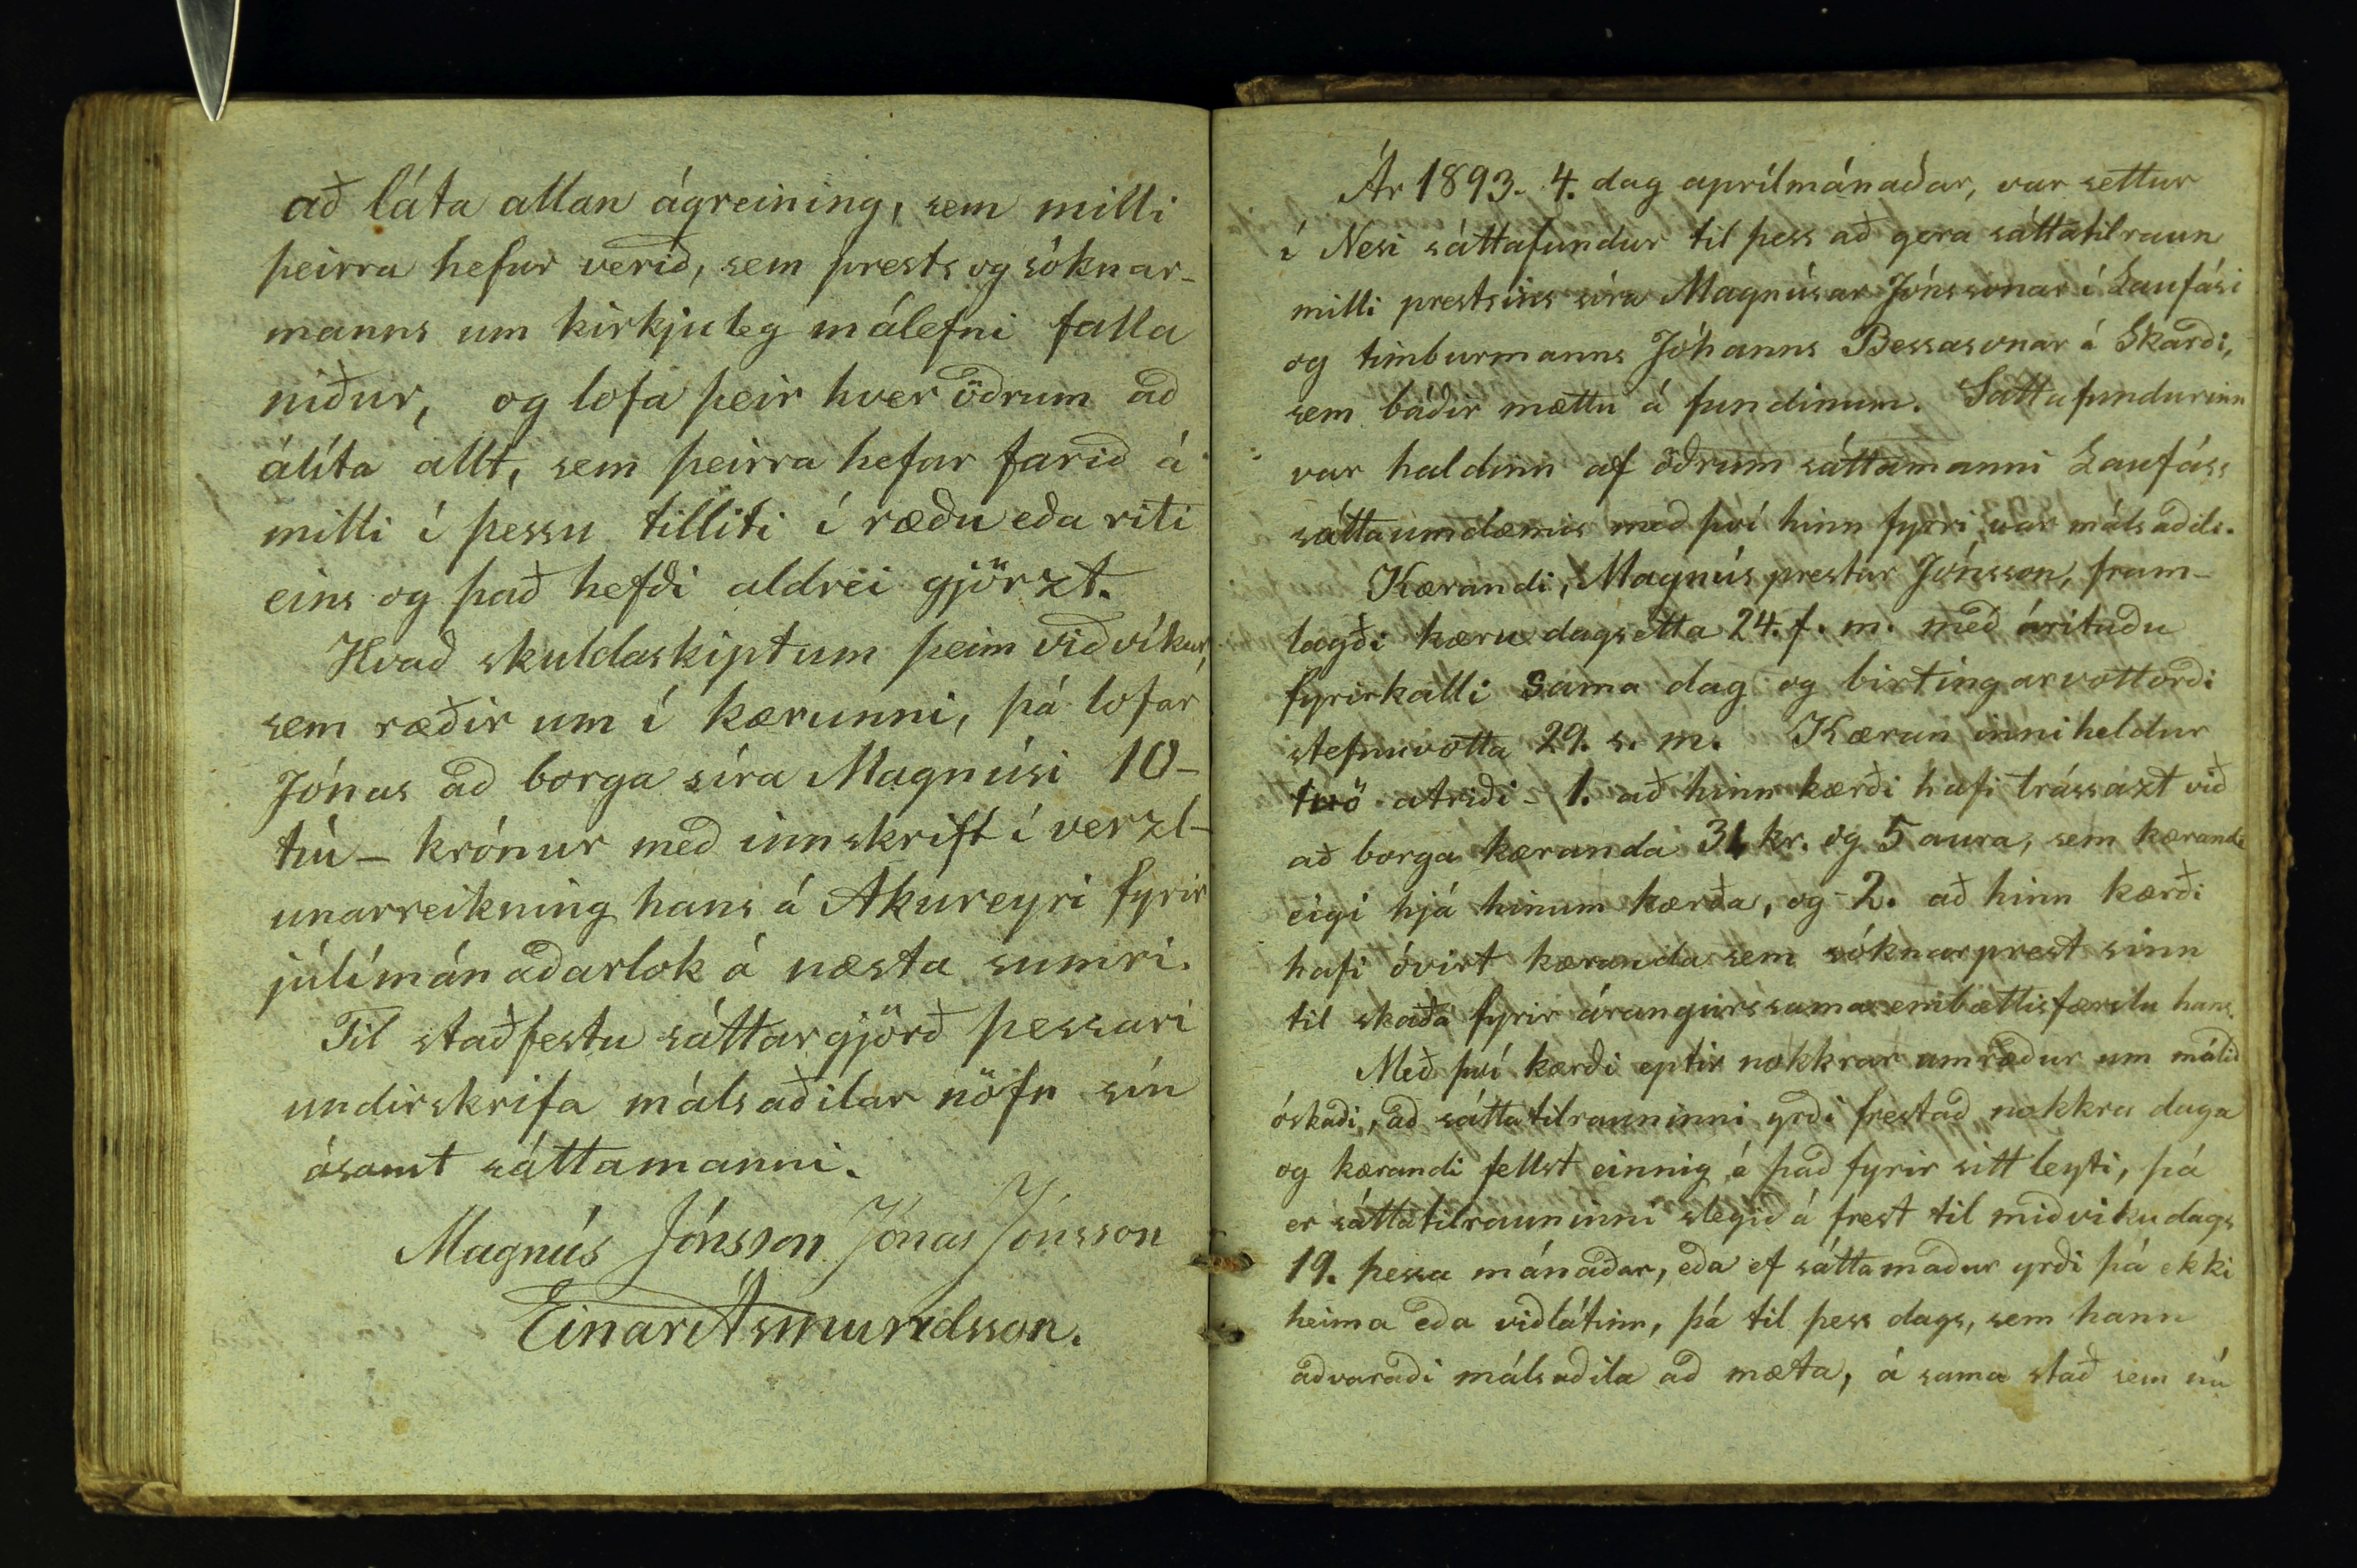 að láta allan ágreining, sem milli
þeirra hefur verið, sem prests og sóknar-
manns um kirkjuleg málefni falla
niður, og lofa þeir hver öðrum að
álíta allt, sem þeirra hefur farið á
milli í þessu tilliti í ræðu eða riti
eins og það hefði aldrei gjörzt.
Hvað skuldaskiptum þeim viðvíkur,
sem ræðir um í kærunni, þá lofar
Jónas að borga síra Magnúsi 10-
tíu- krónur með innskrift í verzl-
unarreikning hans á Akureyri fyrir
júlímánaðarlok á næsta sumri.
Til staðfestu sáttargjörð þessari
undirskrifa málsaðilar nöfn sín
ásamt sáttamanni.
Magnús Jónsson Jónas Jónsson
Einar Ásmundsson.
Ár 1893. 4. dag aprílmánaðar, var settur
í Nesi sáttafundur til þess að gera sáttatilraun
milli prestsins síra Magnúsar Jónssonar í Laufási
og timburmanns Jóhanns Bessasonar á Skarði,
sem báðir mættu á fundinum. Sáttafundurinn
var haldinn af öðrum sáttamanni Laufáss
sáttaumdæmis með því hinn fyrri var málsaðili.
Kærandi, Magnús prestur Jónsson, fram-
lagði kæru dagsetta 24. f. m. með árituðu
fyrirkalli sama dag og birtingarvottorði
stefnuvotta 29. s. m. Kæran inniheldur
tvö atriði - 1. að hinn kærði hafi trássazt við
að borga kæranda 31 kr. og 5 aura, sem kærandi
eigi hjá hinum kærða, og - 2. að hinn kærði
hafi óvirt kæranda sem sóknarprest sinn
til skaða fyrir árangurssama embættisfærslu hans.
Með því kærði eptir nokkrar umræður um málið
óskaði, að sáttatilrauninni yrði frestað nokkra daga
og kærandi fellst einnig á það fyrir sitt leyti, þá
er sáttatilrauninni slegið á frest til miðvikudags
19. þessa mánaðar, eða ef sáttamaður yrði þá ekki
heima eða viðlátinn, þá til þess dags, sem hann
aðvaraði málsaðila að mæta, á sama stað sem nú